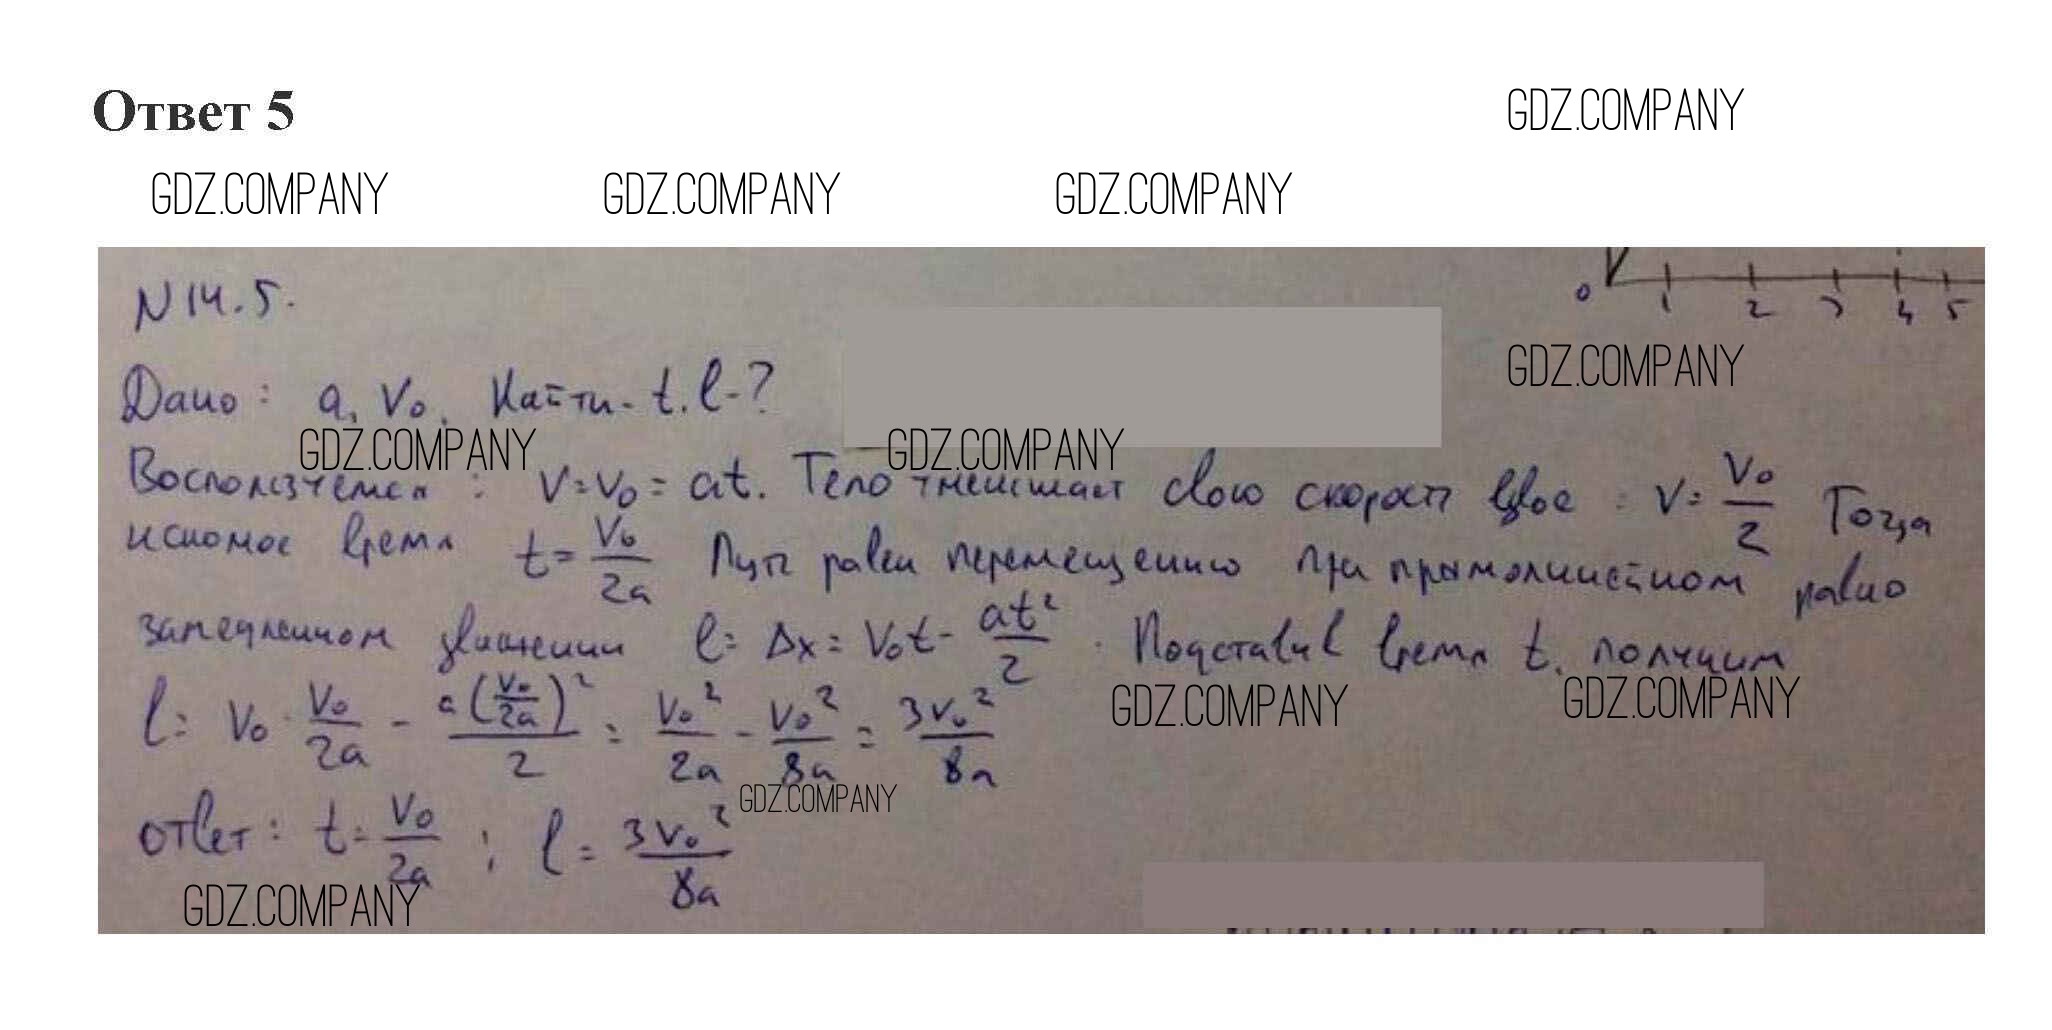 Ответ 5
GDZ.COMPANY
GDZ.COMPANY GDZ.COMPANY GDZ.COMPANY
N 14.5.
0 1 2 3 4 5
GDZ.COMPANY
Дано: a, V₀. Найти - t, l - ?
GDZ.COMPANY GDZ.COMPANY
Воспользуемся: V = V₀ = at. Тело уменьшает свою скорость вдвое: V = V₀/2 Тогда
искомое время t = V₀/2a Путь равен перемещению при прямолинейном равно
замедленном движении l = Δx = V₀t - at²/2. Подставив время t, получим
GDZ.COMPANY GDZ.COMPANY
l = V₀ · V₀/2a - a(V₀/2a)²/2 = V₀²/2a - V₀²/8a = 3V₀²/8a
GDZ.COMPANY
ответ: t = V₀/2a ; l = 3V₀²/8a
GDZ.COMPANY